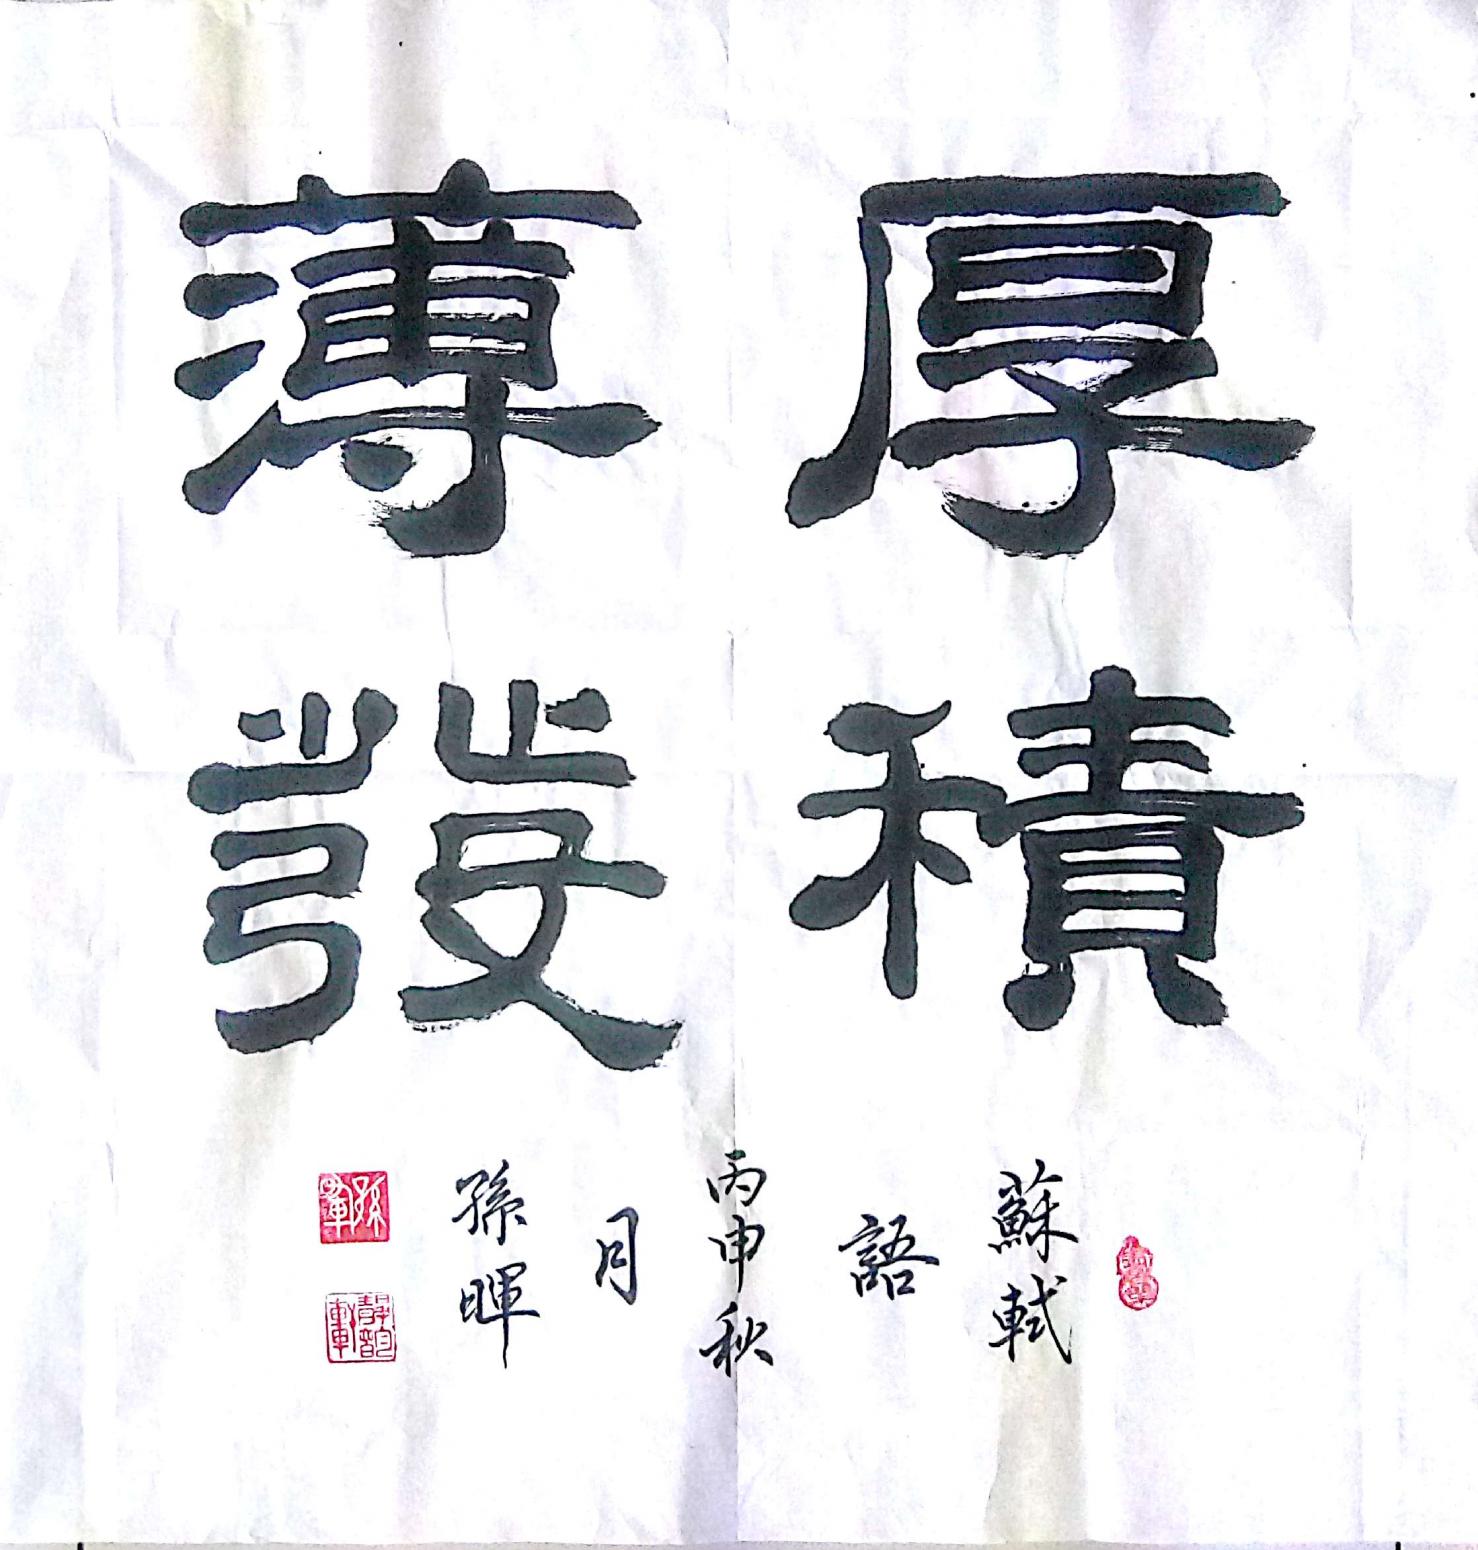 厚積
薄發
蘇軾
語
丙申秋
月
孫暉